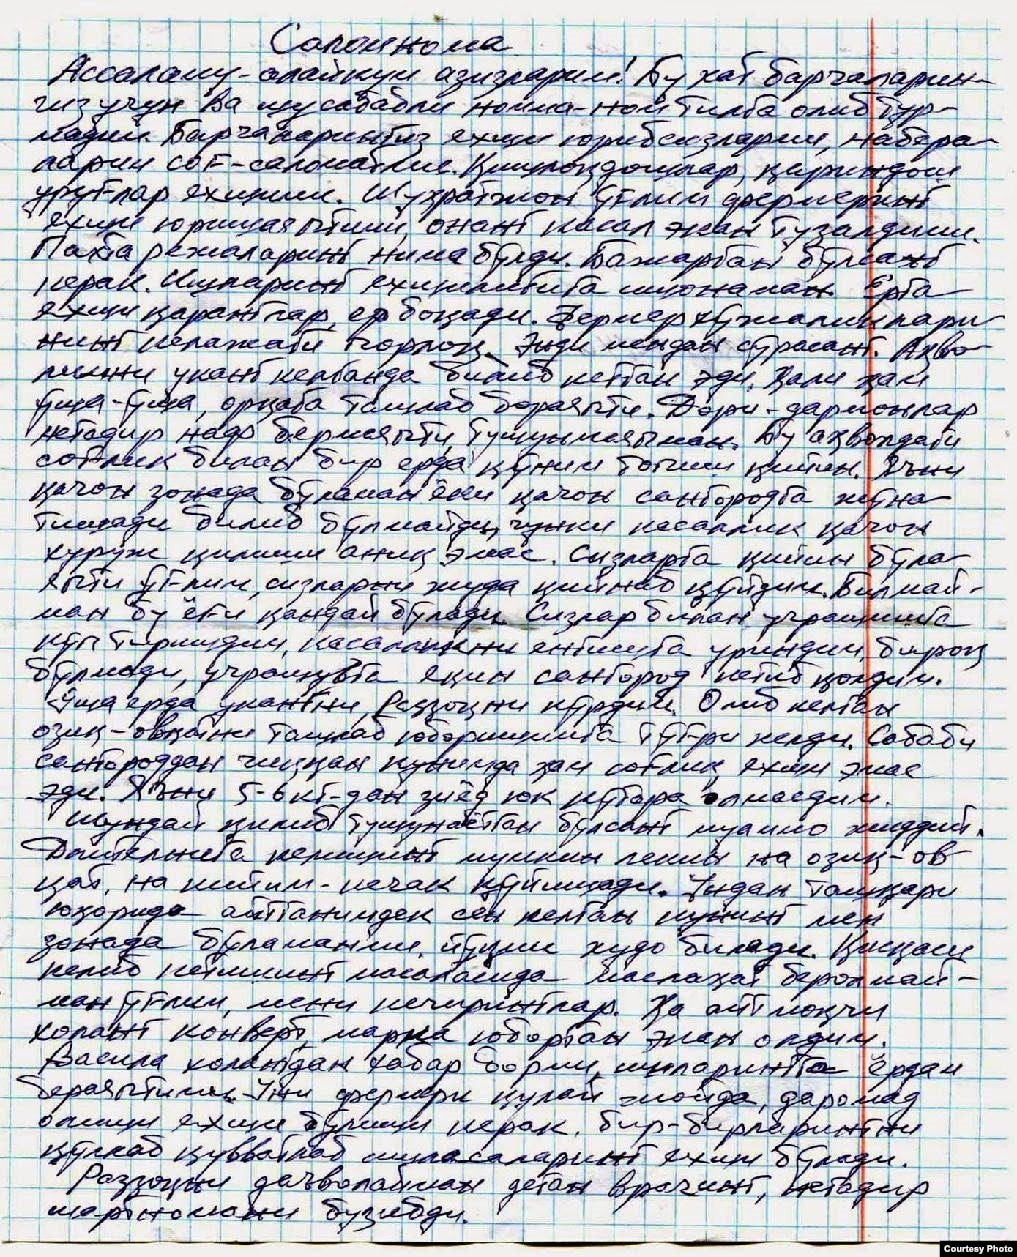 Саломнома
Ассалому-алайкум азизларим! Бу хат барчаларин-
гиз учун ва шу сабабли номма-ном тилга олиб ўтир-
мадим. Барчаларингиз яхши юрибсизларми, набера-
ларим соғ-саломатми. Қишлоқдошлар, қариндош
уруғлар яхшими. Шухратжон ўғлим фермеринг
яхши юришаяптими онанг касал экан тузалдими.
Пахта режаларинг нима бўлди. Бажарган бўлсанг
керак. Ишларинг яхшилигига ишонаман Ерга
яхши қаранглар, ер боқади. Фермер хўжаликлари-
нинг келажаги порлоқ. Энди мендан сўрасанг. Аҳво-
лимни уканг келганда билиб кетган эди. Ҳали ҳам
ўша-ўша, орқага ташлаб бораяпти. Дори-дармонлар
негадир наф бермаяпти, тушунмаяпман. Бу аҳволдаги
соғлик билан бир ерда қўним топиш қийин. Яъни
қачон зонада бўламан ёки қачон сангородга жўна-
тишади билиб бўлмайди, чунки касаллик қачон
хуруж қилиши аниқ эмас. Сизларга қийин бўла-
япти ўғлим, сизларни жуда қийнаб қўйдим. Билмай-
ман бу ёғи қандай бўлади. Сизлар билан учрашишга
кўп тиришдим, касалликни енгишга уриндим, бироқ
бўлмади, учрашувга яқин сангород кетиб қолдим.
Ўша ерда укангни, Раззоқни кўрдим. Олиб келган
озиқ-овқатни ташлаб юборишимга тўғри келди. Сабаби
сангороддан чиққан кунимда ҳам соғлик яхши эмас
эди. Яъни 5-6 кг-дан зиёд юк кўтара олмасдим.
Шундай қилиб тушунаётган бўлсанг муаммо жиддий.
Длительнига келишинг мумкин лекин на озиқ-ов-
қат, на кийим-кечак қўйишади. Ундан ташқари
юқорида айтганимдек сен келган кунинг мен
зонада бўламанми, йўқми худо билади. Қисқаси
келиб кетишинг масаласида маслаҳат беролмай-
ман ўғлим, мени кечиринглар. Ҳа айтмоқчи
холанг конверт, марка юборган экан олдим.
Васила холангдан хабар борми, ишларингга ёрдам
бераяптими. Уни фермери қулай жойда, даромад
олиши яхши бўлиши керак, бир-бирларингни
қўллаб қувватлаб ишласаларинг яхши бўлади.
Раззоқни даъволайман деган врачинг, негадир
шартномани бузибди.
Courtesy Photo